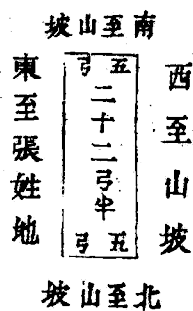 南至山坡
西至山坡
五弓
二十二弓半
五弓
東至張姓地
北至山坡